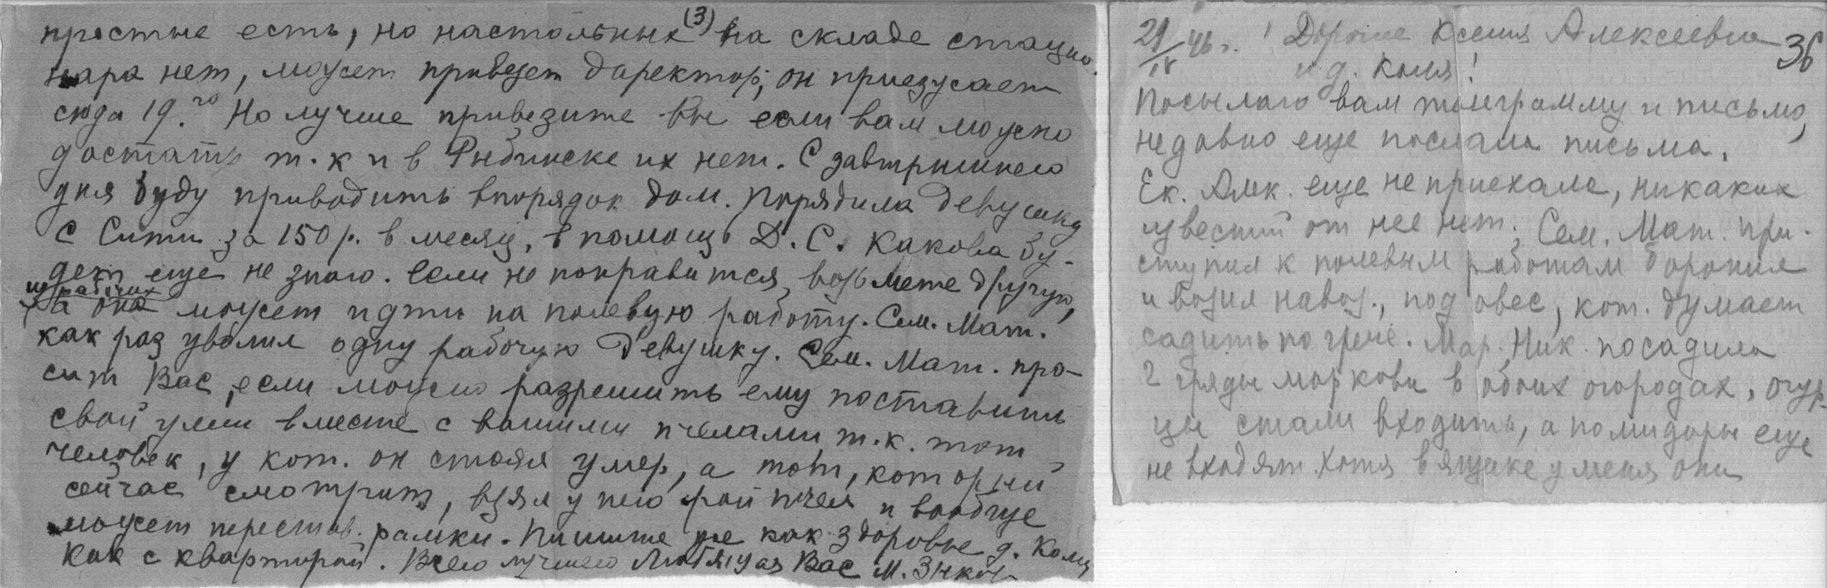 (3)
простые есть, но настольных на складе стацио-
нара нет, может привезет директор, он приезжает
сюда 19го. Но лучше привезите Вы если вам можно
достать т.к и в Рыбинске их нет. С завтрашнего
дня буду приводить впорядок дом. Порядила девушку
с Сити за 150 р. в месяц, в помощь Д. С. Какова бу-
дет еще не знаю. Если не понравится, возьмете другую,
из рабочих
а она может идти на полевую работу. Сем. Мат.
как раз уволил одну рабочую девушку. Сем. Мат. про-
сит Вас, если можно разрешить ему поставить
свой улей вместе с вашими пчелами т.к. тот
человек, у кот. он стоял умер, а тот, который
сейчас смотрит, взял у него рой пчел и вообще
может перестав. рамки. Пишите же как здоровье д. Коли
как с квартирой. Всего лучшего Любящая Вас М.
36
29/IV 46 г. Дорогие Ксения Алексеевна
и д. Коля!
Посылаю вам телеграмму и письмо,
недавно еще послала письма.
Ек. Алек. еще не приехала, никаких
известий от нее нет. Сем. Мат. при-
ступил к полевым работам боронил
и возил навоз, под овес, кот. думает
садить по грече. Мар. Ник. посадила
2 гряды моркови в обоих огородах, огур-
цы стали входить, а помидоры еще
не входят. Хотя в ящике у меня они